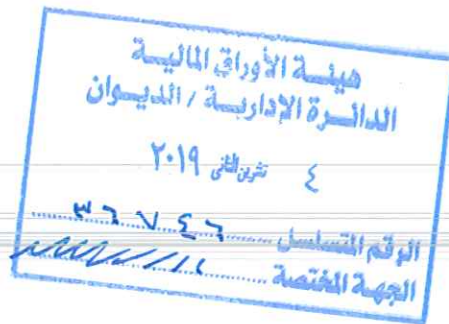 هيئة الأوراق المالية
الدائرة الإدارية / الديوان
٤ تشرين الثاني ٢٠١٩
الرقم المتسلسل ٣٦٧٤٦
الجهة المختصة